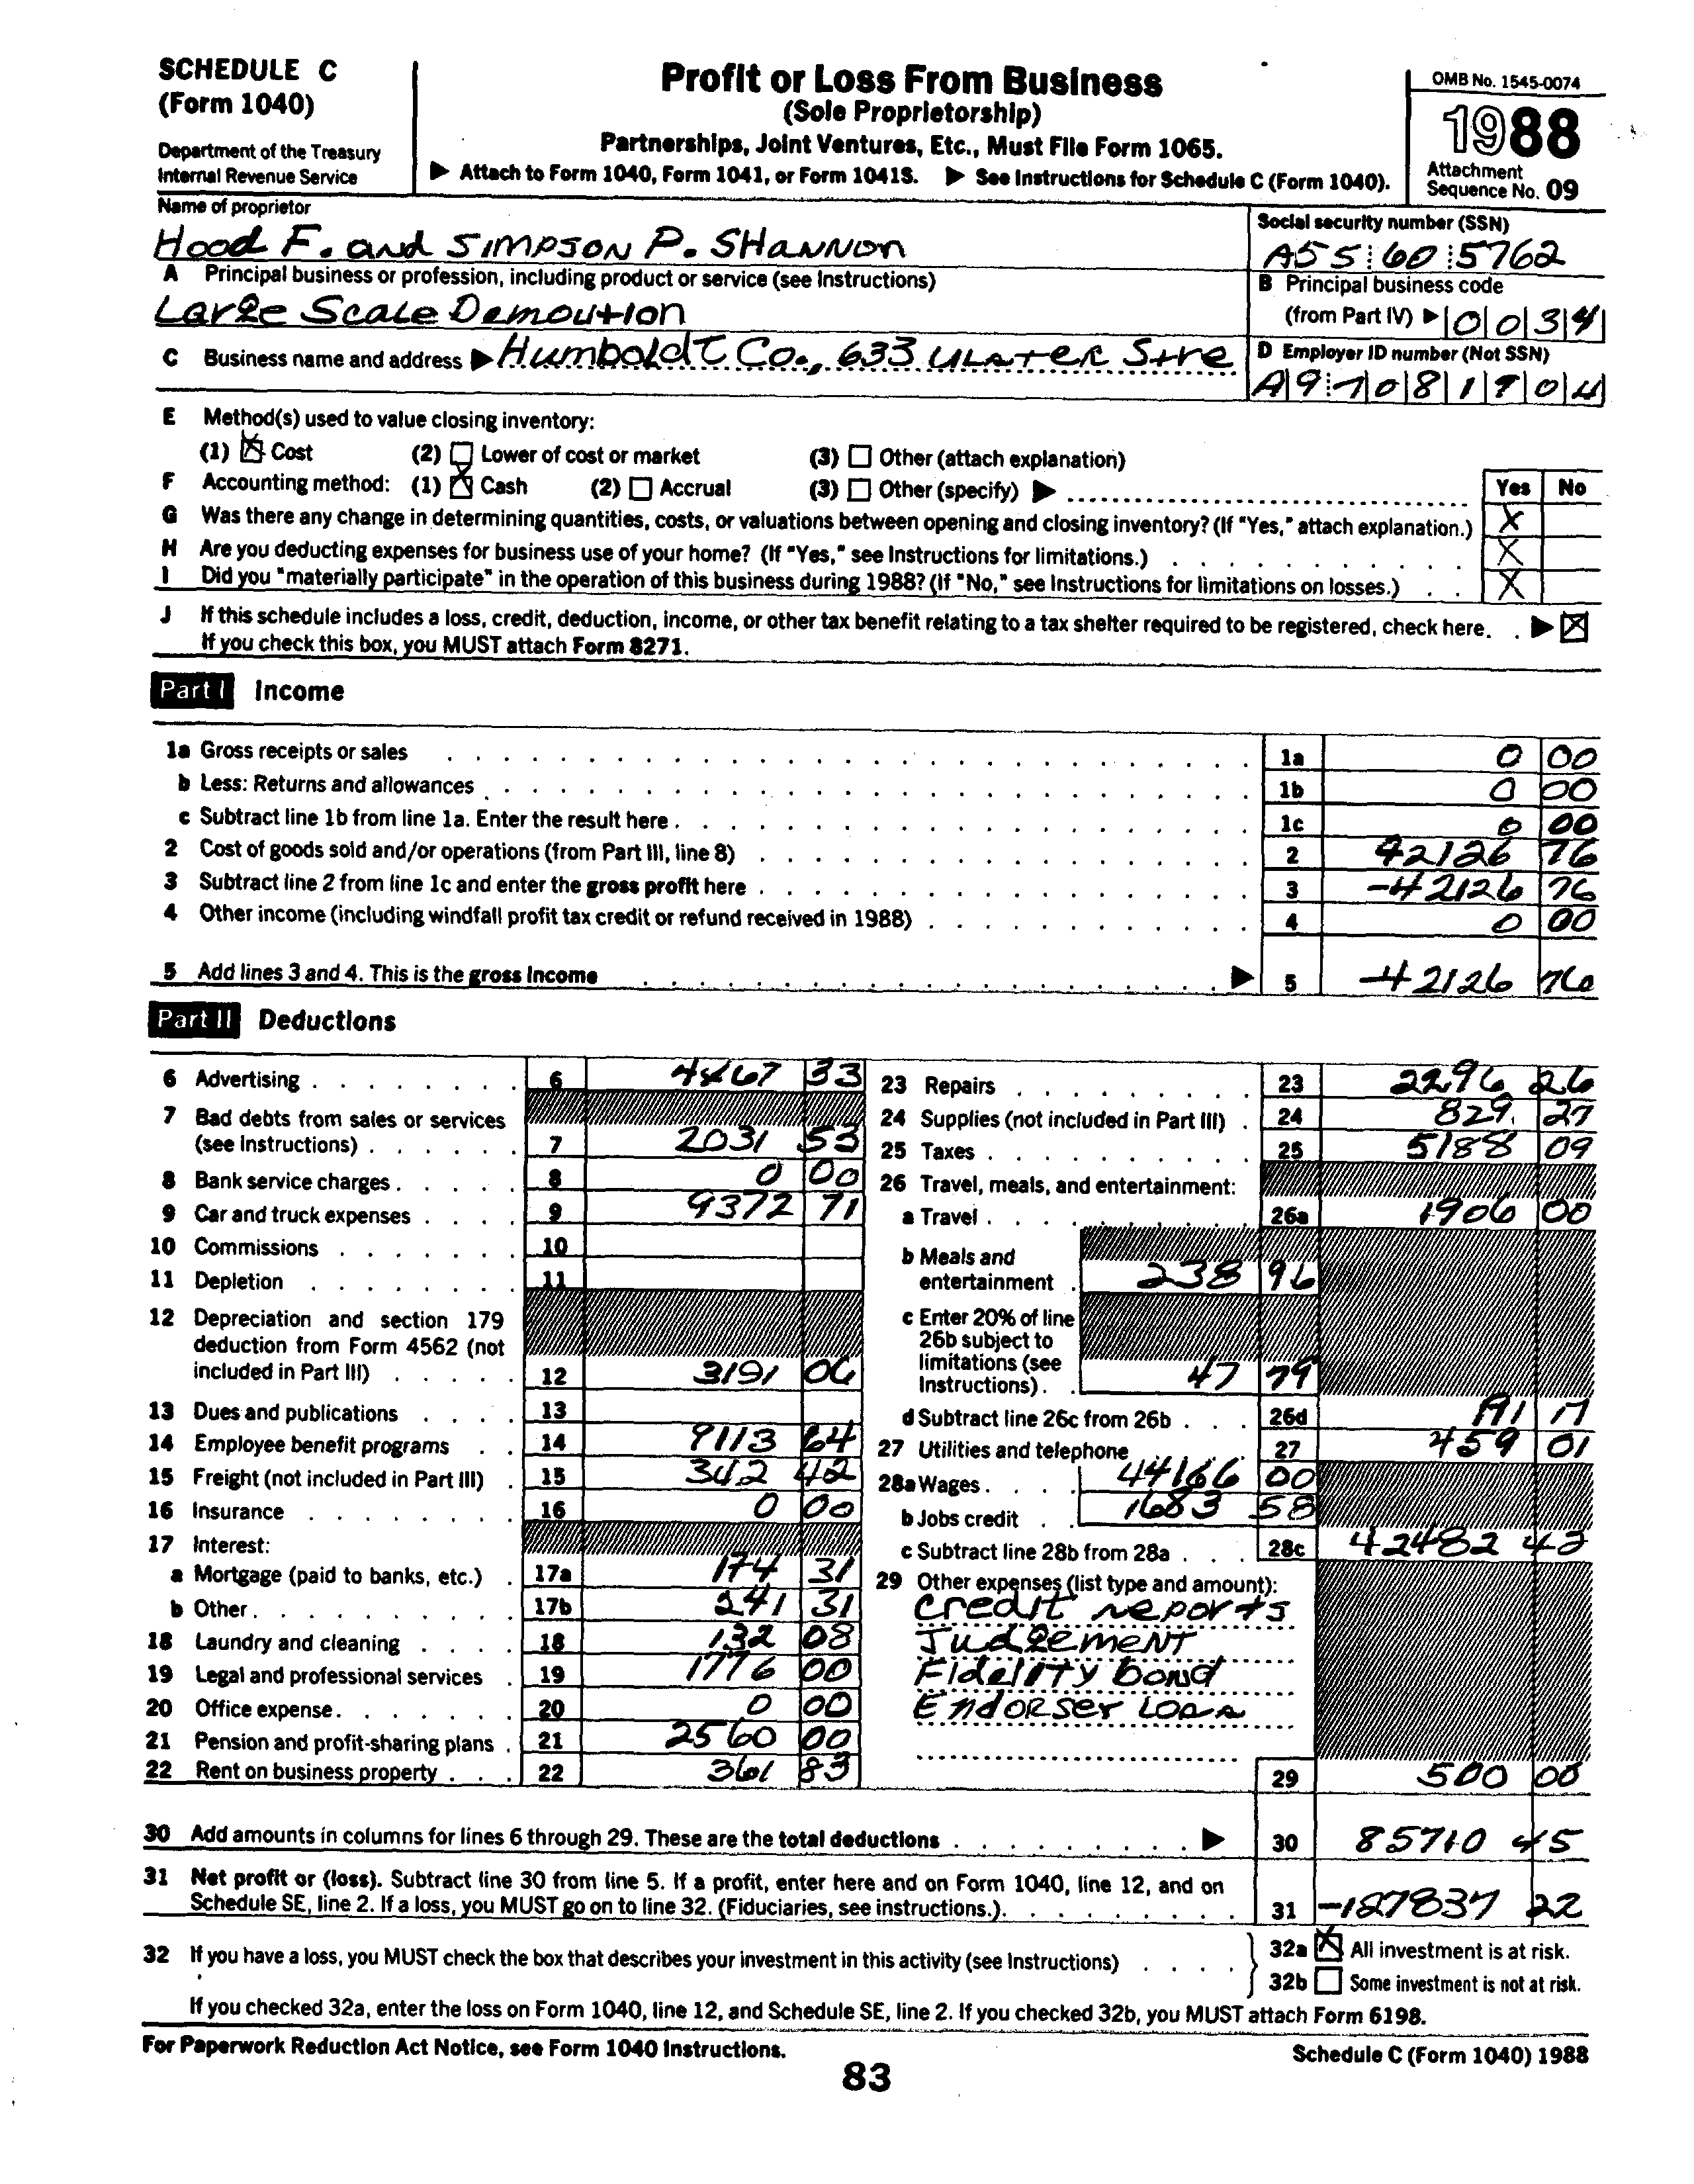 SCHEDULE C
(Form 1040)
Department of the Treasury
Internal Revenue Service
Profit or Loss From Business
(Sole Proprietorship)
Partnerships, Joint Ventures, Etc., Must File Form 1065.
▶ Attach to Form 1040, Form 1041, or Form 1041S. ▶ See Instructions for Schedule C (Form 1040).
OMB No. 1545-0074
1988
Attachment
Sequence No. 09
Name of proprietor
Hood F. and SIMPSON P. SHANNON
Social security number (SSN)
A55 60 5762
A Principal business or profession, including product or service (see Instructions)
Large Scale Demolition
B Principal business code
(from Part IV) ▶ 0034
C Business name and address ▶ Humboldt Co., 633 ULSTER Stre
D Employer ID number (Not SSN)
A9 7081904
E Method(s) used to value closing inventory:
(1) ☒ Cost (2) ☐ Lower of cost or market (3) ☐ Other (attach explanation)
F Accounting method: (1) ☒ Cash (2) ☐ Accrual (3) ☐ Other (specify) ▶
Yes No
G Was there any change in determining quantities, costs, or valuations between opening and closing inventory? (If "Yes," attach explanation.) X
H Are you deducting expenses for business use of your home? (If "Yes," see Instructions for limitations.) X
I Did you "materially participate" in the operation of this business during 1988? (If "No," see Instructions for limitations on losses.) X
J If this schedule includes a loss, credit, deduction, income, or other tax benefit relating to a tax shelter required to be registered, check here. ▶ ☒
If you check this box, you MUST attach Form 8271.
Part I Income
1a Gross receipts or sales 1a 0 00
b Less: Returns and allowances 1b 0 00
c Subtract line 1b from line 1a. Enter the result here 1c 0 00
2 Cost of goods sold and/or operations (from Part III, line 8) 2 42126 76
3 Subtract line 2 from line 1c and enter the gross profit here 3 -42126 76
4 Other income (including windfall profit tax credit or refund received in 1988) 4 0 00
5 Add lines 3 and 4. This is the gross income ▶ 5 -42126 76
Part II Deductions
6 Advertising 6 4467 33
7 Bad debts from sales or services
(see Instructions) 7 2031 53
8 Bank service charges 8 0 00
9 Car and truck expenses 9 9372 71
10 Commissions 10
11 Depletion 11
12 Depreciation and section 179
deduction from Form 4562 (not
included in Part III) 12 3191 06
13 Dues and publications 13
14 Employee benefit programs 14 9113 64
15 Freight (not included in Part III) 15 342 42
16 Insurance 16 0 00
17 Interest:
a Mortgage (paid to banks, etc.) 17a 174 31
b Other 17b 241 31
18 Laundry and cleaning 18 132 08
19 Legal and professional services 19 1776 00
20 Office expense 20 0 00
21 Pension and profit-sharing plans 21 2560 00
22 Rent on business property 22 361 83
23 Repairs 23 2296 26
24 Supplies (not included in Part III) 24 829. 27
25 Taxes 25 5188 09
26 Travel, meals, and entertainment:
a Travel 26a 1906 00
b Meals and
entertainment 238 96
c Enter 20% of line
26b subject to
limitations (see
Instructions) 47 79
d Subtract line 26c from 26b 26d 191 17
27 Utilities and telephone 27 459 01
28a Wages 44166 00
b Jobs credit 1683 58
c Subtract line 28b from 28a 28c 42482 42
29 Other expenses (list type and amount):
Credit reports
Judgement
Fidelity bond
Endorser Loan
29 500 00
30 Add amounts in columns for lines 6 through 29. These are the total deductions ▶ 30 85710 45
31 Net profit or (loss). Subtract line 30 from line 5. If a profit, enter here and on Form 1040, line 12, and on
Schedule SE, line 2. If a loss, you MUST go on to line 32. (Fiduciaries, see instructions.) 31 -127837 22
32 If you have a loss, you MUST check the box that describes your investment in this activity (see Instructions)
32a ☒ All investment is at risk.
32b ☐ Some investment is not at risk.
If you checked 32a, enter the loss on Form 1040, line 12, and Schedule SE, line 2. If you checked 32b, you MUST attach Form 6198.
For Paperwork Reduction Act Notice, see Form 1040 Instructions.
Schedule C (Form 1040) 1988
83